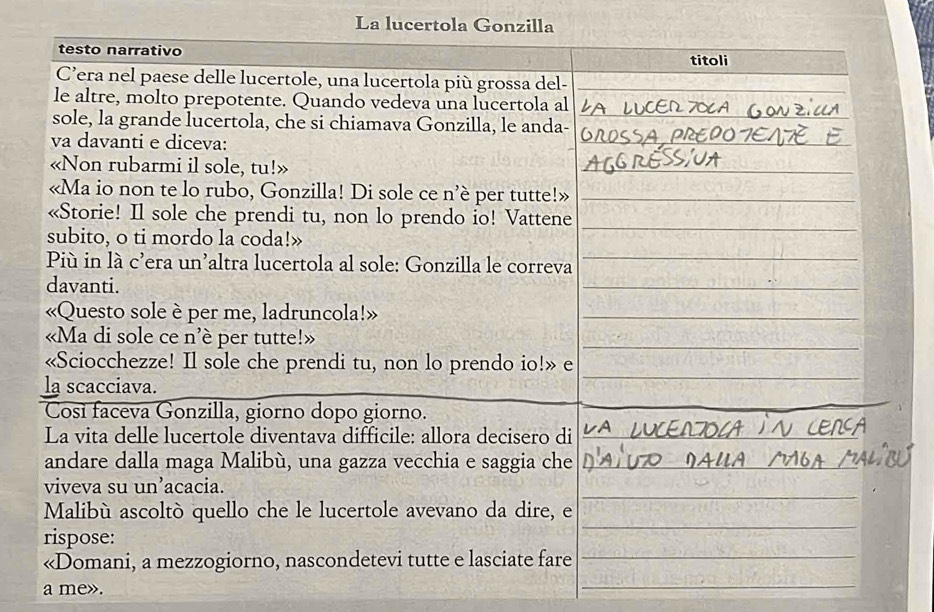 La lucertola Gonzilla
testo narrativo
titoli
C'era nel paese delle lucertole, una lucertola più grossa del-
le altre, molto prepotente. Quando vedeva una lucertola al
sole, la grande lucertola, che si chiamava Gonzilla, le anda-
va davanti e diceva:
«Non rubarmi il sole, tu!»
«Ma io non te lo rubo, Gonzilla! Di sole ce n'è per tutte!»
«Storie! Il sole che prendi tu, non lo prendo io! Vattene
subito, o ti mordo la coda!»
Più in là c'era un'altra lucertola al sole: Gonzilla le correva
davanti.
«Questo sole è per me, ladruncola!»
«Ma di sole ce n'è per tutte!»
«Sciocchezze! Il sole che prendi tu, non lo prendo io!» e
la scacciava.
Così faceva Gonzilla, giorno dopo giorno.
La vita delle lucertole diventava difficile: allora decisero di
andare dalla maga Malibù, una gazza vecchia e saggia che
viveva su un'acacia.
Malibù ascoltò quello che le lucertole avevano da dire, e
rispose:
«Domani, a mezzogiorno, nascondetevi tutte e lasciate fare
a me».
LA LUCERTOLA GONZILLA
GROSSA PREPOTENTE E
AGGRESSIVA
LA LUCERTOLA IN CERCA
D'AIUTO DALLA MAGA MALIBÙ